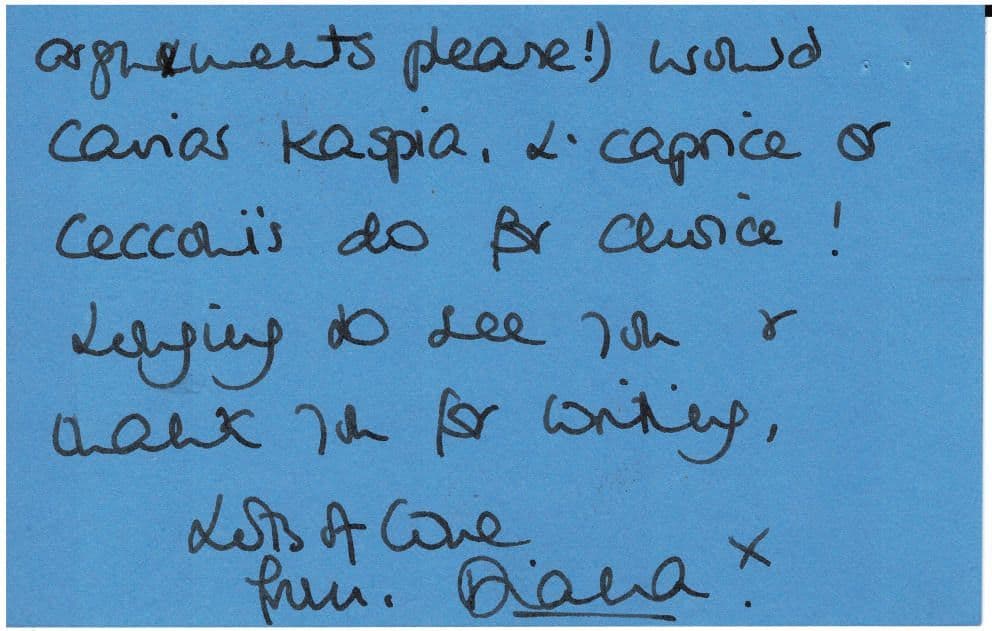 arguements please!) would
Caviar Kaspia, L. Caprice or
Cecconi's do for choice!
Longing to see you &
thank you for writing,
Lots of love
from. Diana x